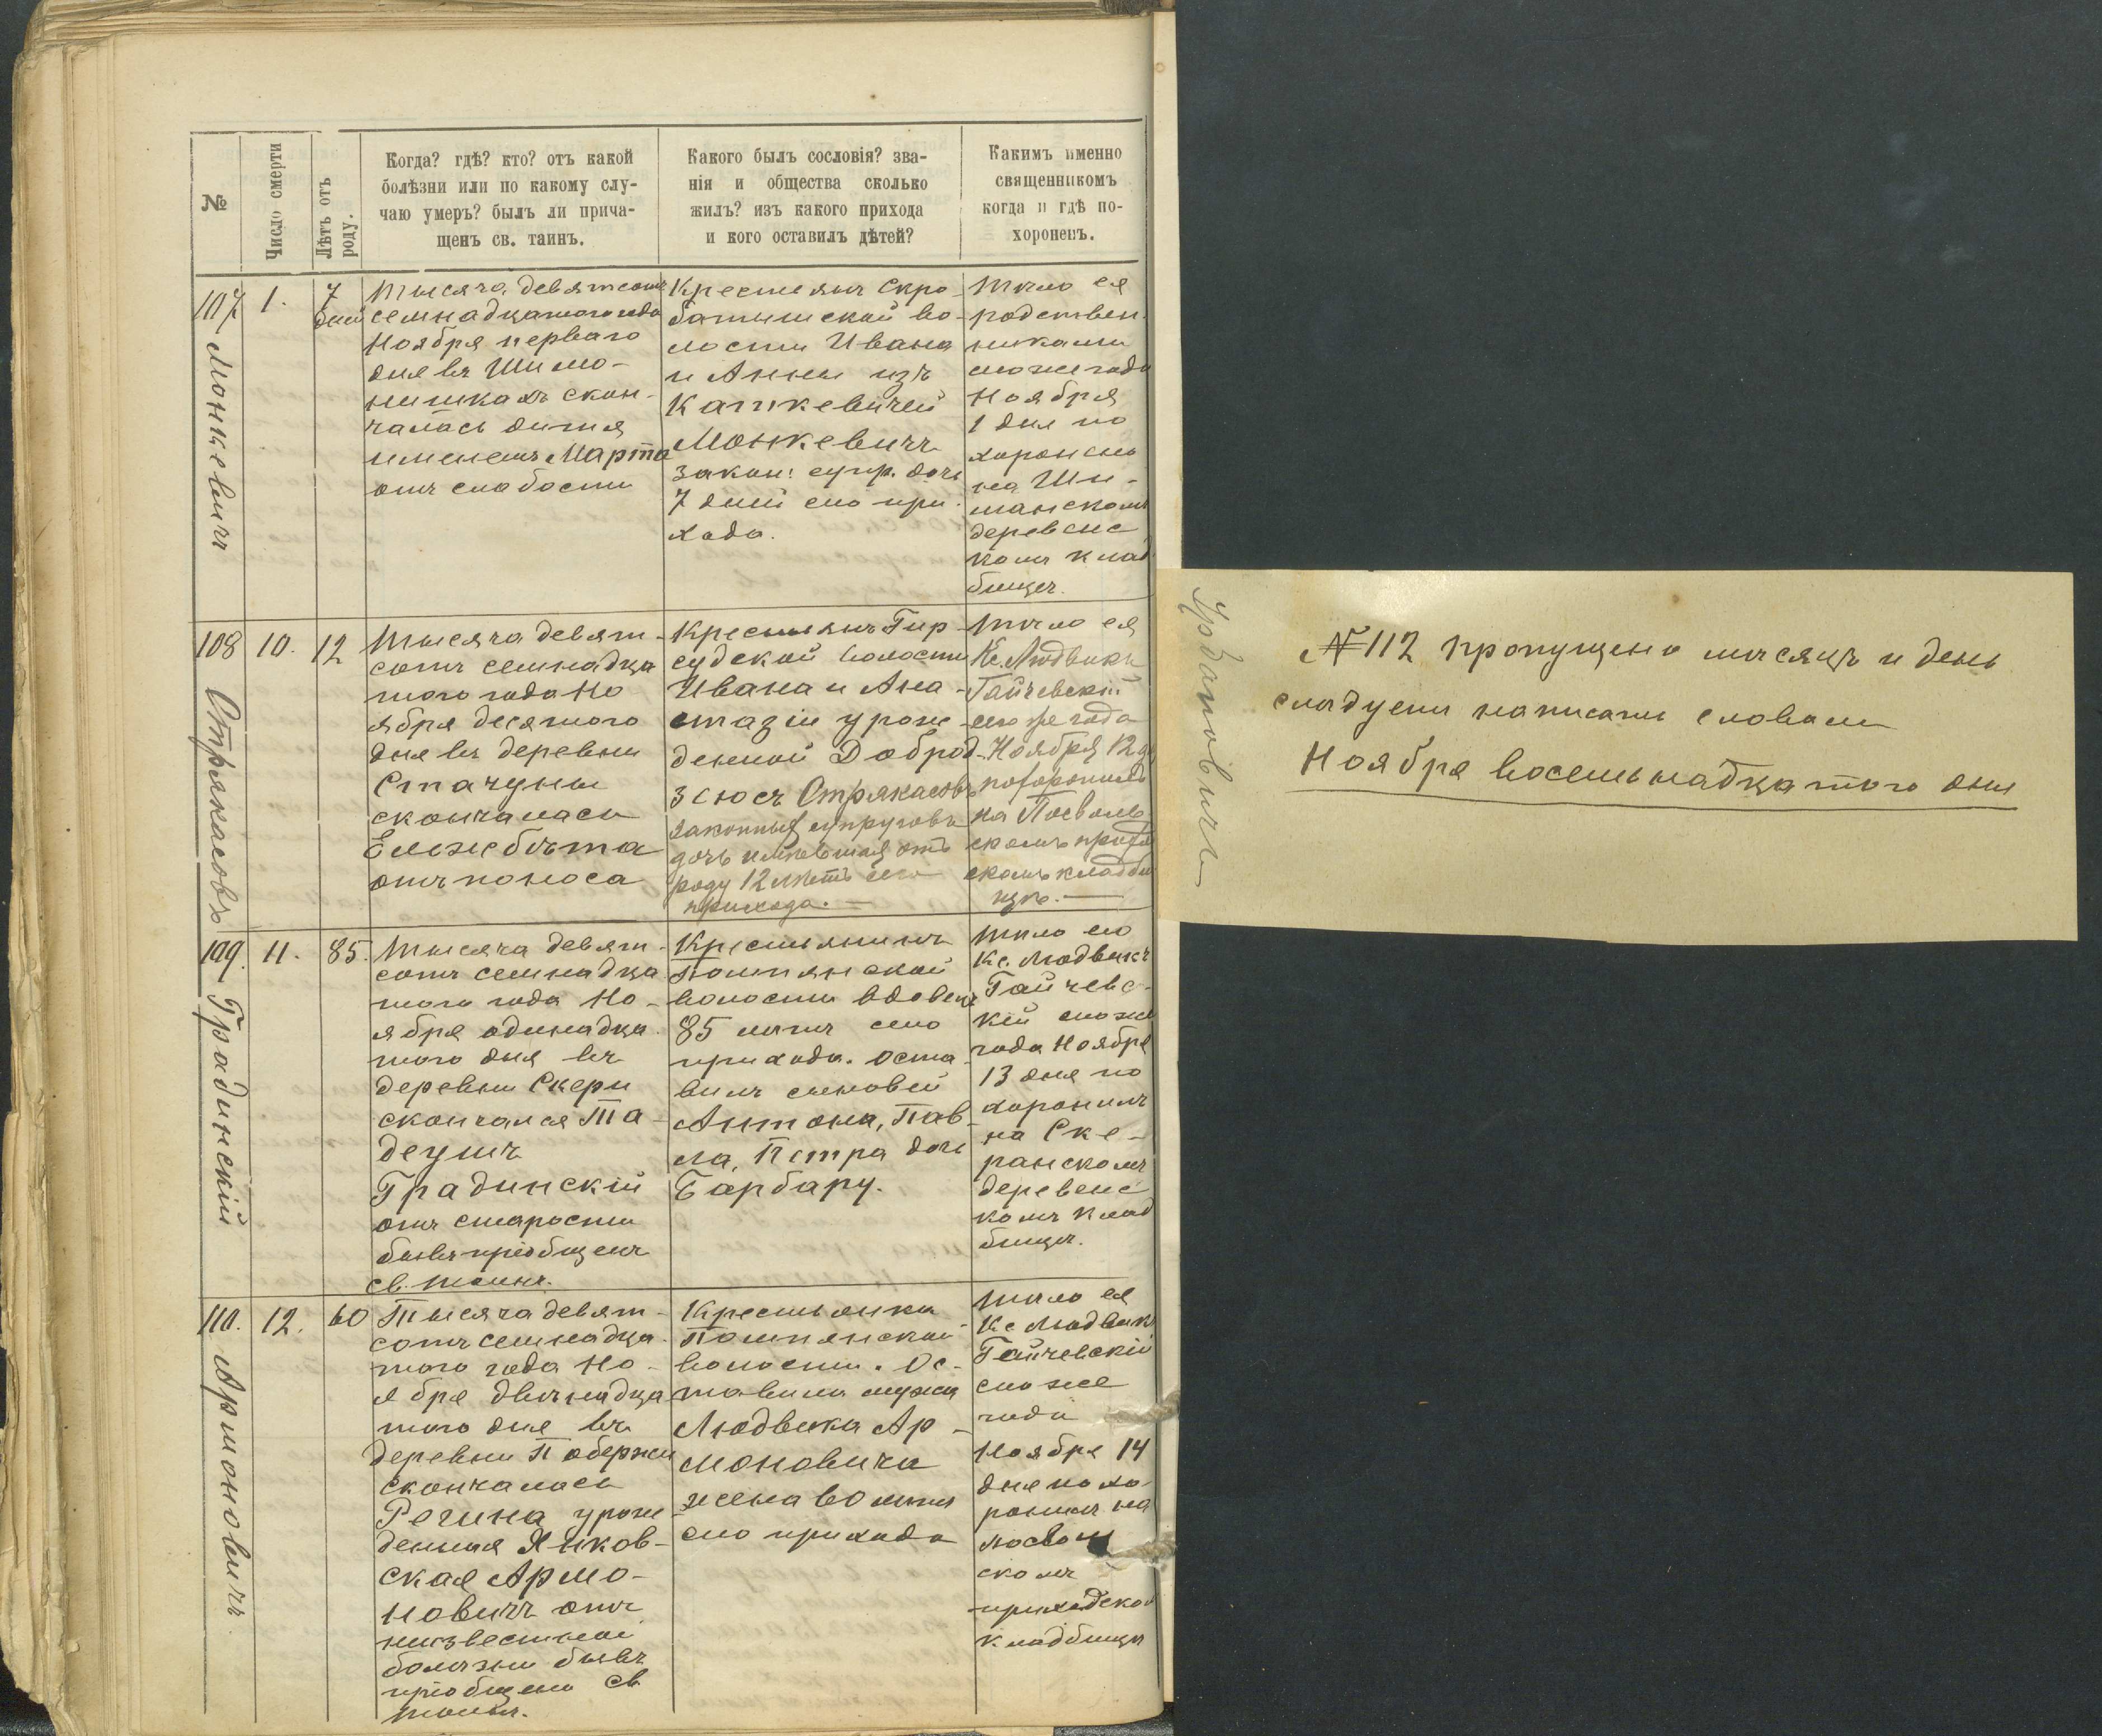 №
Число смерти
Лѣтъ отъ роду.
Когда? гдѣ? кто? отъ какой
болѣзни или по какому слу-
чаю умеръ? былъ ли прича-
щенъ св. таинъ.
Какого былъ сословія? зва-
нія и общества сколько
жилъ? изъ какого прихода
и кого оставилъ дѣтей?
Какимъ именно
священникомъ
когда и гдѣ по-
хороненъ.
107
Монкевичъ
1.
7
дней
Тысяча девятсотъ
семнадцатого года
Ноября перваго
дня въ Шимо-
нишкахъ скон-
чалась дитя
именемъ Марта
отъ слабости
Крестьянъ Скро-
батишской во-
лости Ивана
и Анны изъ
Каткевичей
Монкевичъ
закон: супр. дочь
7 дней сего при-
хода.
Тѣло ея
родствен-
никами
сегоже года
Ноября
1 дня по
хоронено
на Ши-
манскомъ
деревенс
комъ клад
бищѣ.
108
Стракасовъ
10.
12
Тысяча девят-
сотъ семнадца
того года Но
ября десятого
дня въ деревни
Стачуны
скончалась
Елжбѣта
отъ поноса
Крестьянъ Гир-
судской волости
Ивана и Ана-
стазіи урож-
денной Доброд-
зсюсъ Стракасовъ
законныхъ супруговъ
дочь имѣвшая отъ
роду 12 лѣтъ сего
прихода.—
Тѣло ея
Кс. Людвикъ
Гайчевскій
сего же года
Ноября 12 д
похоронилъ
на Посволь
скомъ приход
скомъ кладби
щѣ.—
109.
Градинскій
11.
85.
Тысяча девят-
сотъ семнадца
того года Но-
ября одинадца
того дня въ
деревни Скери
скончался Та-
деушъ
Градинскій
отъ старости
бывъ пріобщенъ
св. таинъ.
Крестьянинъ
Помпянской
волости вдовецъ
85 лѣтъ сего
прихода. Оста-
вилъ сыновей
Антона, Пав-
ла, Петра дочь
Барбару.
Тѣло его
Кс. Людвикъ
Гайчевс-
кій сегоже
года Ноября
13 дня по
хоронилъ
на Ске-
ранскомъ
деревенс
комъ клад
бищѣ.
110.
Армоновичъ
12.
60
Тысяча девят-
сотъ семнадца-
того года Но-
ября двѣнадца
того дня въ
деревни Побержи
скончалась
Регина урож-
денная Янков-
ская Армо-
новичъ отъ
неизвестной
болѣзни бывъ
пріобщена Св.
таинъ.
Крестьянка
Помпянской
волости. Ос-
тавила мужа
Людвика Ар-
моновича
жена 60 лѣтъ
сего прихода
Тѣло ея
Кс Людвикъ
Гайчевскій
сегоже
года
Ноября 14
дня похо-
ронилъ на
Посвол
скомъ
приходском
кладбищѣ
Урбановичъ
№ 112 пропущено мѣсяцъ и день
слѣдуетъ написать словами
Ноября восемьнадцатого дня